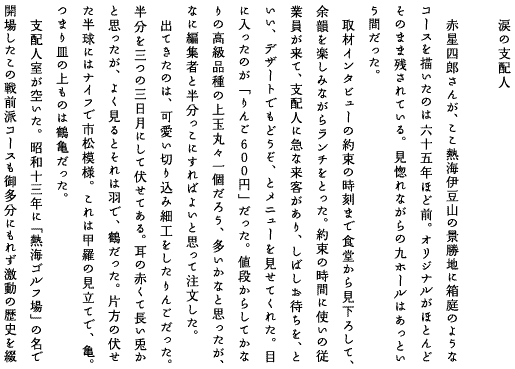 涙の支配人
赤星四郎さんが、ここ熱海伊豆山の景勝地に箱庭のような
コースを描いたのは六十五年ほど前。オリジナルがほとんど
そのまま残されている。見惚れながらの九ホールはあっとい
う間だった。
取材インタビューの約束の時刻まで食堂から見下ろして、
余韻を楽しみながらランチをとった。約束の時間に使いの従
業員が来て、支配人に急な来客があり、しばしお待ちを、と
いい、デザートでもどうぞ、とメニューを見せてくれた。目
に入ったのが「りんご600円」だった。値段からしてかな
りの高級品種の上玉丸々一個だろう、多いかなと思ったが、
なに編集者と半分っこにすればよいと思って注文した。
出てきたのは、可愛い切り込み細工をしたりんごだった。
半分を三つの三日月にして伏せてある。耳の赤くて長い兎か
と思ったが、よく見るとそれは羽で、鶴だった。片方の伏せ
た半球にはナイフで市松模様。これは甲羅の見立てで、亀。
つまり皿の上ものは鶴亀だった。
支配人室が空いた。昭和十三年に「熱海ゴルフ場」の名で
開場したこの戦前派コースも御多分にもれず激動の歴史を綴